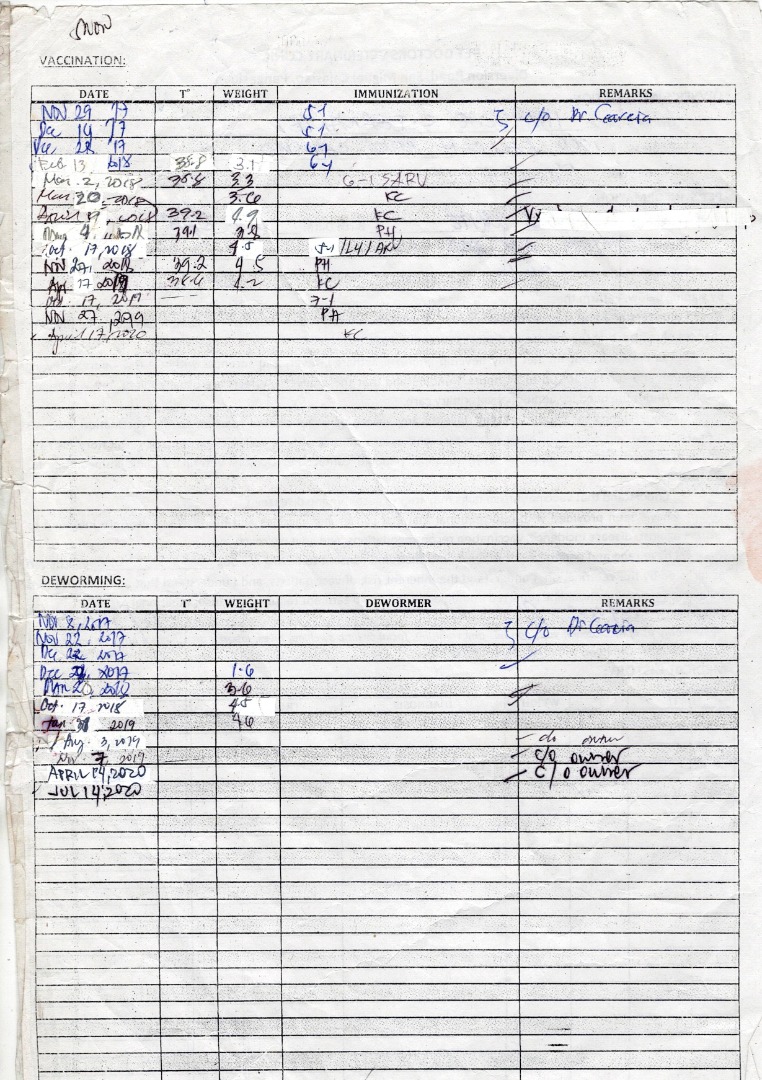 SNOW
VACCINATION:
DATE T° WEIGHT IMMUNIZATION REMARKS
NOV 29 17 5-1 c/o Dr. Garcia
Dec 14 17 5-1
Dec 28 17 6-1
Feb 13 2018 38.8 3.1 6-1
Mar. 2, 2018 38.8 3.3 6-1 SARV
Mar 20, 2018 3.6 KC
2018 39.2 4.9 KC
May 4 39.1 3.8 PH
Oct. 17, 2018 4.5 5-1 /L4/ARV
NOV 27, 2018 39.2 4.5 PH
Apr 17 2019 38.6 4.2 KC
17, 2019 7-1
NOV 27, 2019 PH
April 17, 2020 KC
DEWORMING:
DATE T° WEIGHT DEWORMER REMARKS
NOV 8, 2017 c/o Dr Garcia
NOV 22, 2017
Dec 22 2017
Dec 2017 1.6
MAR 20, 2018 3.6
Oct. 17 2018 4.5
Jan 31 2019 4.6
Aug. 3, 2019 owner
Nov. 7, 2019 c/o owner
APRIL 14, 2020 c/o owner
JUL 14, 2020